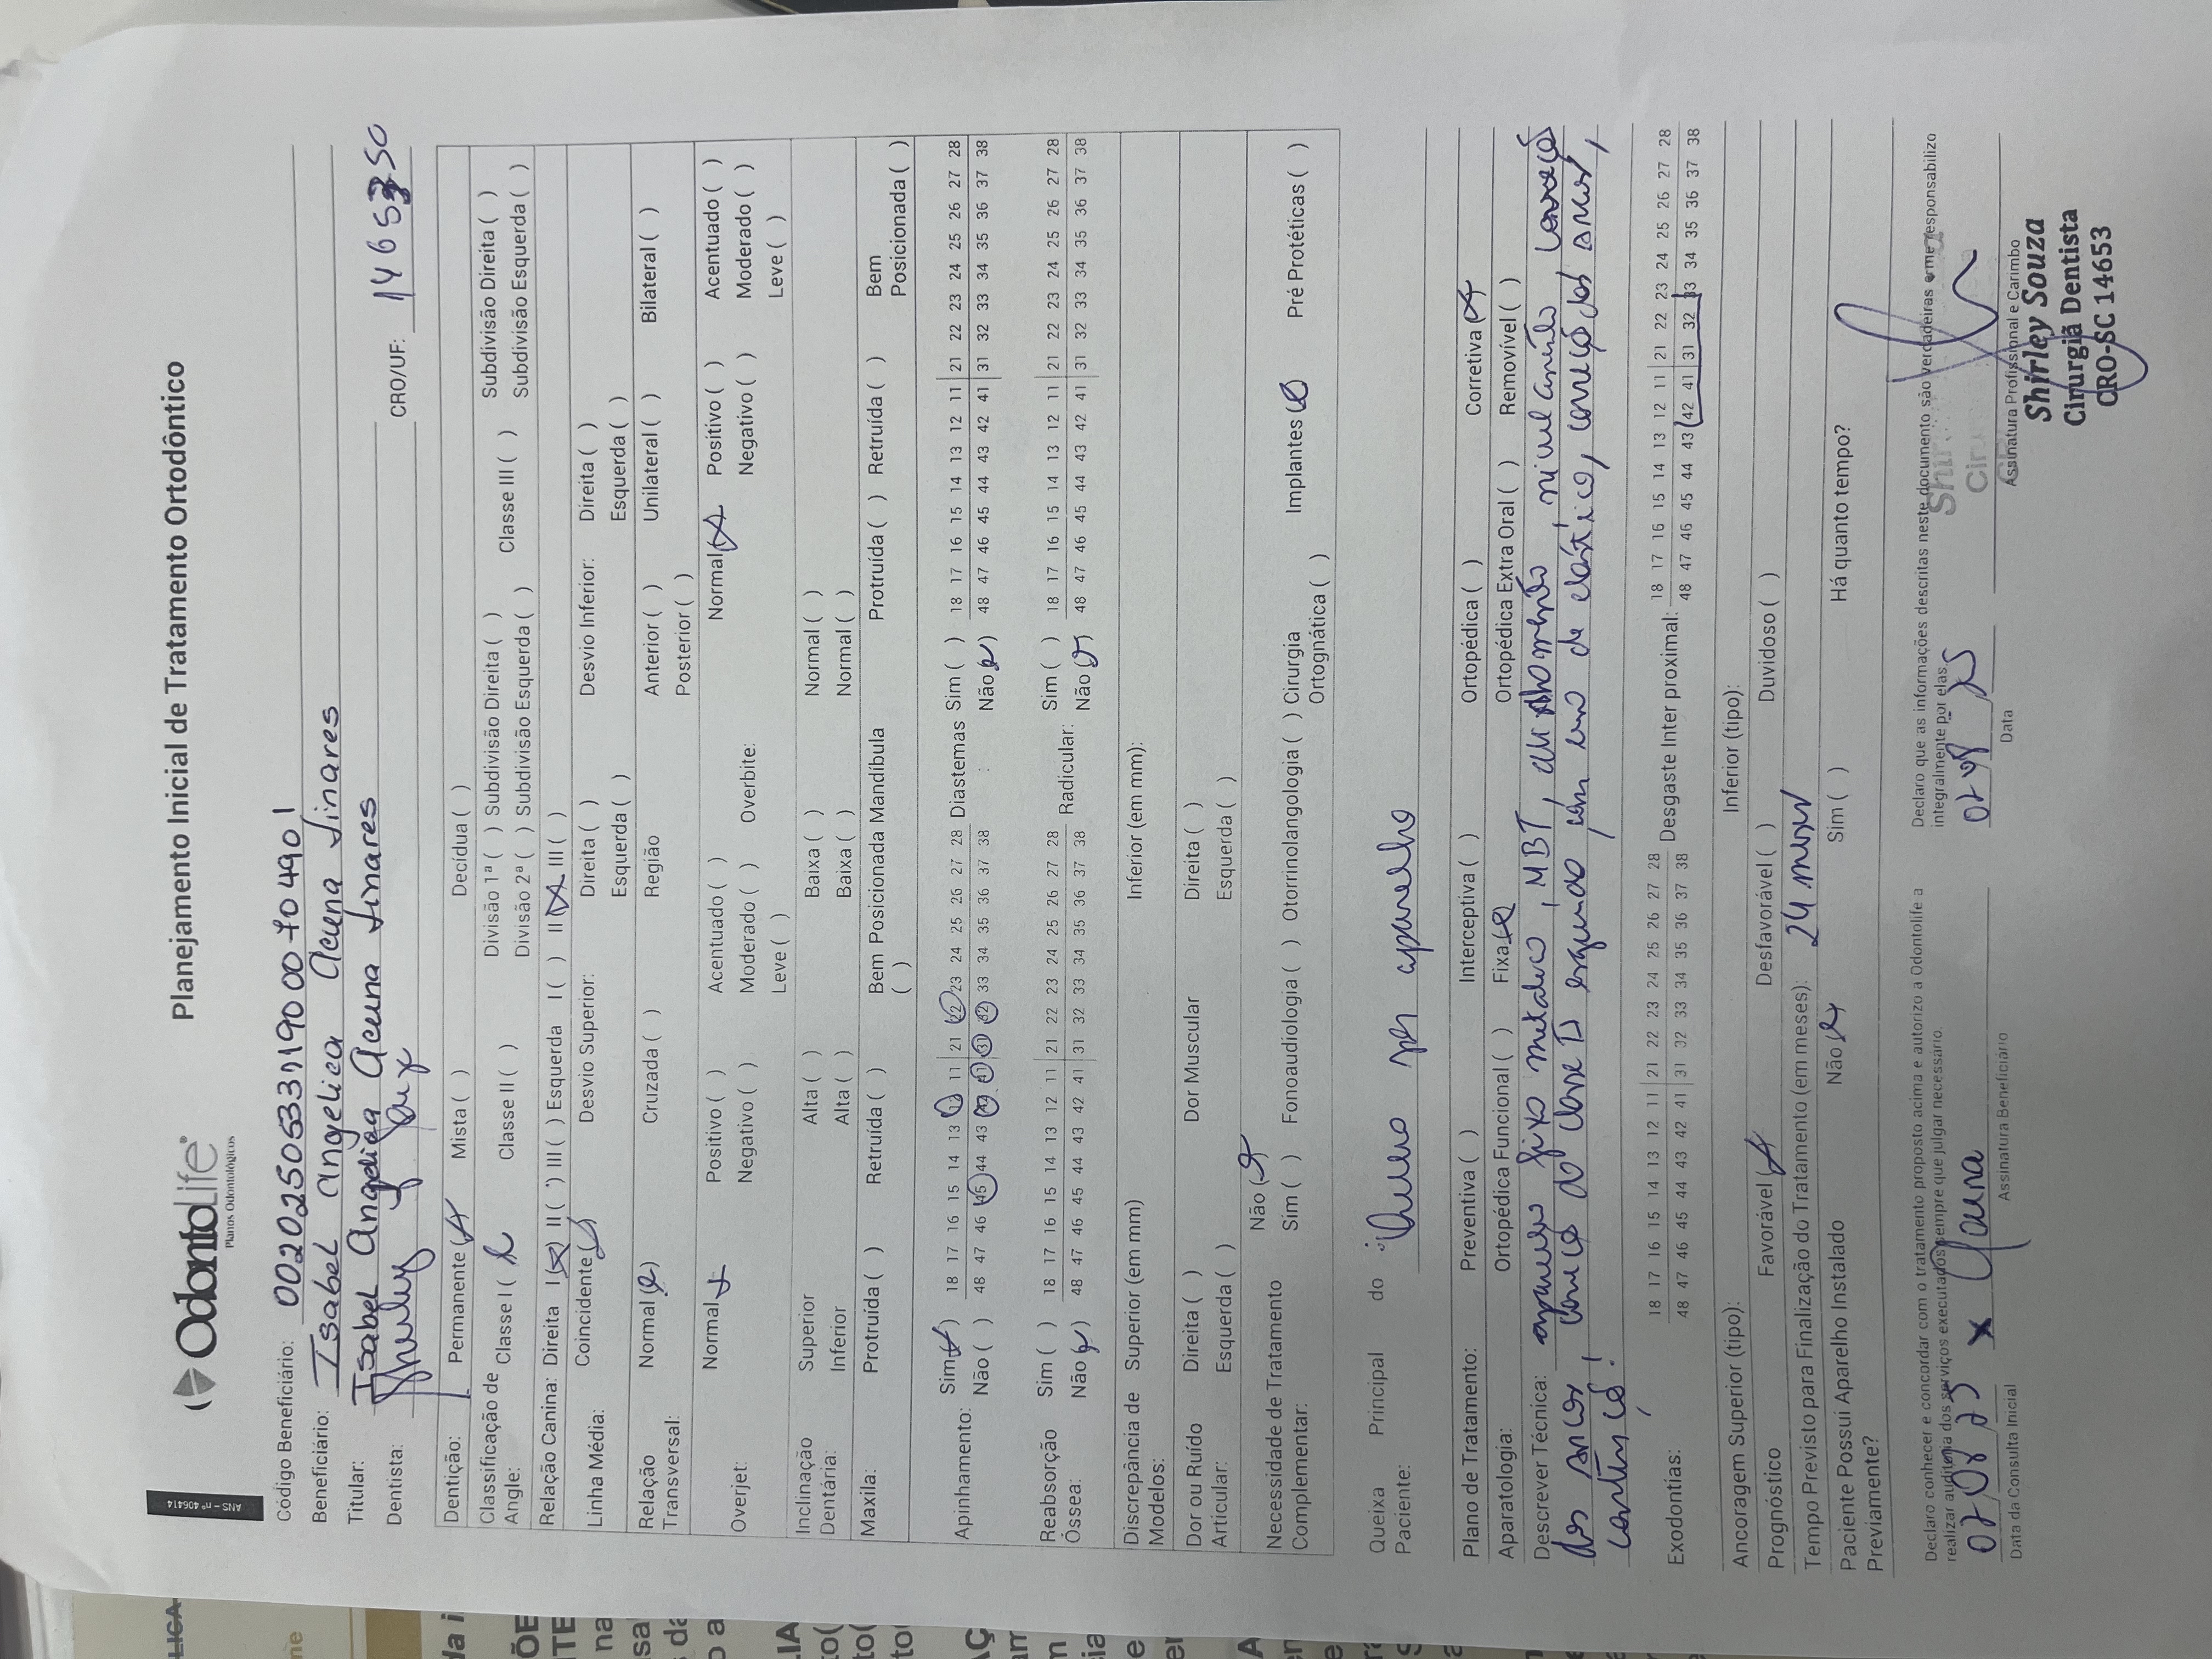 ANS - nº 406414
OdontoLife
Planos Odontológicos
Planejamento Inicial de Tratamento Ortodôntico
Código Beneficiário: 002025053319000704901
Beneficiário: Isabel Angelica Acuna Linares
Titular: Isabel Angelica Acuna Linares
Dentista: Shirley Souza CRO/UF: 14653 SC
Dentição: Permanente (X) Mista ( ) Decídua ( )
Classificação de Angle: Classe I (X) Classe II ( ) Divisão 1ª ( ) Subdivisão Direita ( ) Classe III ( ) Subdivisão Direita ( )
Divisão 2ª ( ) Subdivisão Esquerda ( ) Subdivisão Esquerda ( )
Relação Canina: Direita I (X) II ( ) III ( ) Esquerda I ( ) II (X) III ( )
Linha Média: Coincidente (X) Desvio Superior: Direita ( ) Desvio Inferior: Direita ( )
Esquerda ( ) Esquerda ( )
Relação Transversal: Normal (X) Cruzada ( ) Região Anterior ( ) Unilateral ( ) Bilateral ( )
Posterior ( )
Overjet: Normal X Positivo ( ) Acentuado ( ) Overbite: Normal (X) Positivo ( ) Acentuado ( )
Negativo ( ) Moderado ( ) Negativo ( ) Moderado ( )
Leve ( ) Leve ( )
Inclinação Dentária: Superior Alta ( ) Baixa ( ) Normal ( )
Inferior Alta ( ) Baixa ( ) Normal ( )
Maxila: Protruída ( ) Retruída ( ) Bem Posicionada ( ) Mandíbula Protruída ( ) Retruída ( ) Bem Posicionada ( )
Apinhamento: Sim (X) 18 17 16 15 14 13 12 11 | 21 22 23 24 25 26 27 28 Diastemas: Sim ( ) 18 17 16 15 14 13 12 11 | 21 22 23 24 25 26 27 28
Não ( ) 48 47 46 45 44 43 42 41 31 32 33 34 35 36 37 38 Não (X) 48 47 46 45 44 43 42 41 31 32 33 34 35 36 37 38
Reabsorção Óssea: Sim ( ) 18 17 16 15 14 13 12 11 21 22 23 24 25 26 27 28 Radicular: Sim ( ) 18 17 16 15 14 13 12 11 21 22 23 24 25 26 27 28
Não (X) 48 47 46 45 44 43 42 41 31 32 33 34 35 36 37 38 Não (X) 48 47 46 45 44 43 42 41 31 32 33 34 35 36 37 38
Discrepância de Modelos: Superior (em mm) Inferior (em mm):
Dor ou Ruído Articular: Direita ( ) Dor Muscular Direita ( )
Esquerda ( ) Esquerda ( )
Necessidade de Tratamento Complementar: Não (X)
Sim ( ) Fonoaudiologia ( ) Otorrinolangologia ( ) Cirurgia Ortognática ( ) Implantes (X) Pré Protéticas ( )
Queixa Principal do Paciente: aparelho
Plano de Tratamento: Preventiva ( ) Interceptiva ( ) Ortopédica ( ) Corretiva (X)
Aparatologia: Ortopédica Funcional ( ) Fixa (X) Ortopédica Extra Oral ( ) Removível ( )
Descrever Técnica: aparelho fixo metalico, MBT, alinhamento, nivelamento, correção
dos arcos, correção da classe II esquerdo com uso de elástico, correção dos arcos,
contenção!
Exodontias: 18 17 16 15 14 13 12 11 | 21 22 23 24 25 26 27 28 Desgaste Inter proximal: 18 17 16 15 14 13 12 11 | 21 22 23 24 25 26 27 28
48 47 46 45 44 43 42 41 | 31 32 33 34 35 36 37 38 48 47 46 45 44 43 42 41 31 32 33 34 35 36 37 38
Ancoragem Superior (tipo): Inferior (tipo):
Prognóstico Favorável (X) Desfavorável ( ) Duvidoso ( )
Tempo Previsto para Finalização do Tratamento (em meses): 24 meses
Paciente Possui Aparelho Instalado Previamente? Não (X) Sim ( ) Há quanto tempo?
Declaro conhecer e concordar com o tratamento proposto acima e autorizo a Odontolife a
realizar auditoria dos serviços executados sempre que julgar necessário.
Declaro que as informações descritas neste documento são verdadeiras e me responsabilizo
integralmente por elas.
07/08/25 X
Data da Consulta Inicial Assinatura Beneficiário
07/08/25
Data Assinatura Profissional e Carimbo
Shirley Souza
Cirurgiã Dentista
CRO-SC 14653